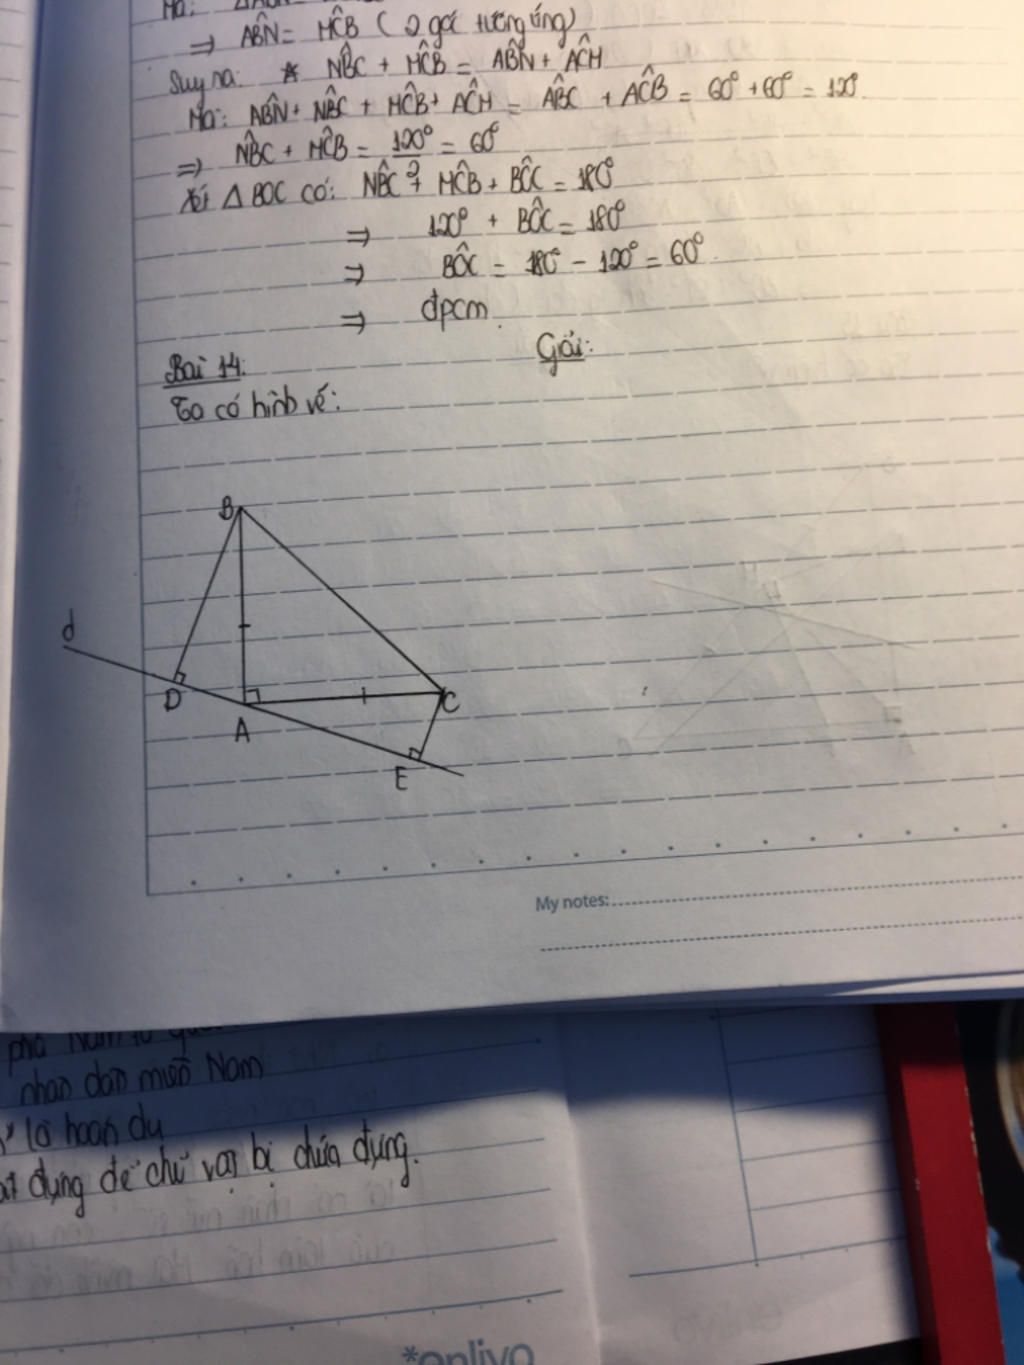 Mà:
⇒ AB̂N = MĈB (2 góc tương ứng)
Suy ra: * NB̂C + MĈB = AB̂N + AĈH
Mà: AB̂N + NB̂C + MĈB + AĈH = AB̂C + AĈB = 60° + 60° = 120°
⇒ NB̂C + MĈB = 120°/2 = 60°
Xét △BOC có: NB̂C + MĈB + BÔC = 180°
⇒ 120° + BÔC = 180°
⇒ BÔC = 180° - 120° = 60°
⇒ đpcm.
Bài 14:
Giải:
Ta có hình vẽ:
B
d
D
A
C
E
My notes:
phó Nam
nhân dân miền Nam
là hoán dụ
dụng để chỉ vật bị chứa đựng.
*enlivo